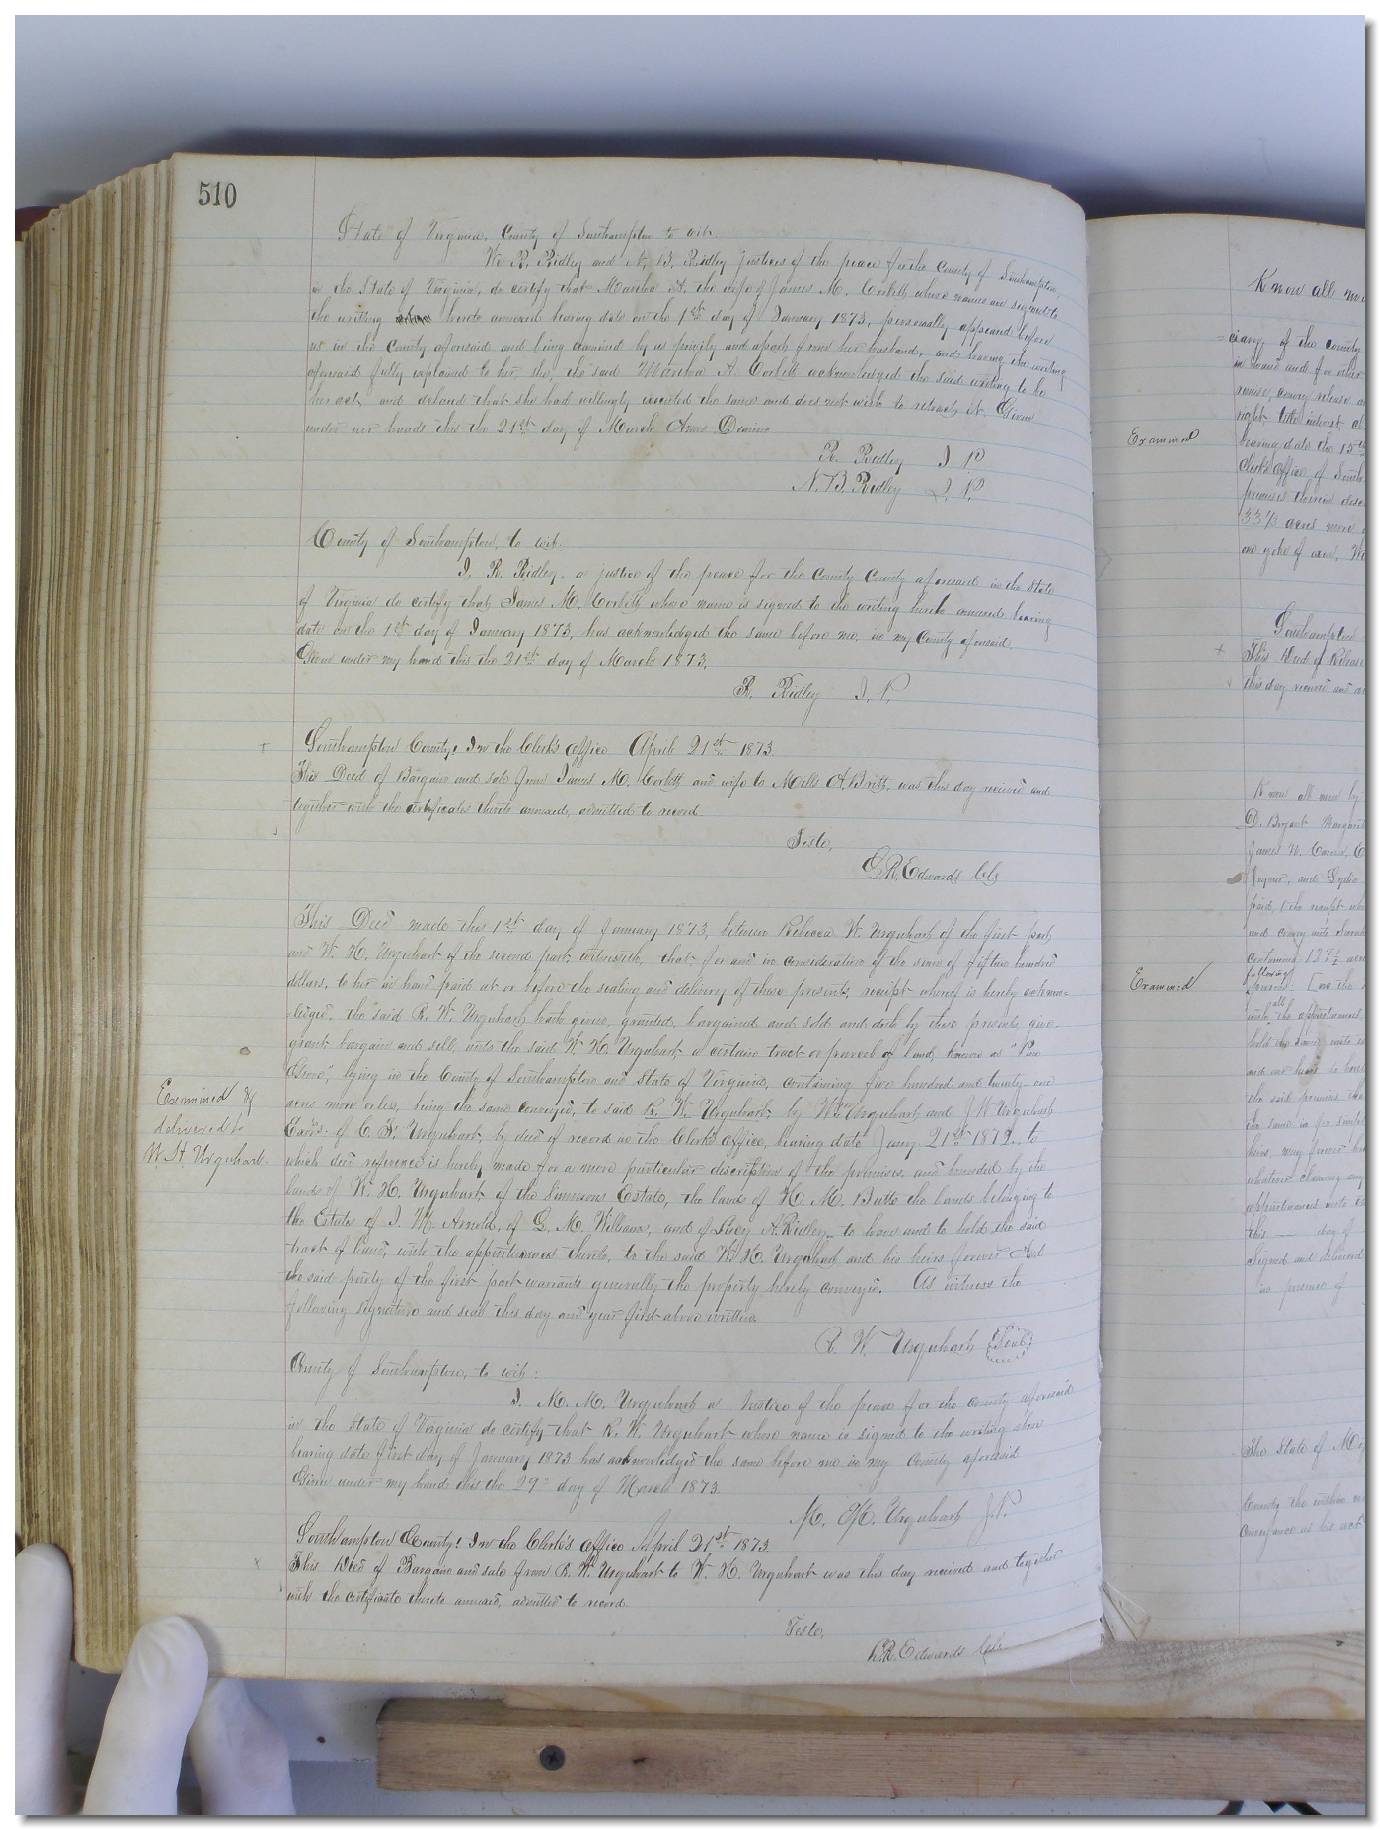 510
State of Virginia, County of Southampton to wit.
We R. Ridley and N. B. Ridley Justices of the peace for the County of Southampton,
in the State of Virginia, do certify that Martha A. the wife of James M. Corbitt whose names are signed to
the writing hereto annexed bearing date on the 1st day of January 1873, personally appeared before
us in the County aforesaid and being examined by us privily and apart from her husband, and having the writing
aforesaid fully explained to her, she, the said Martha A Corbitt acknowledged the said writing to be
her act, and declared that she had willingly executed the same and does not wish to retract it. Given
under our hands this the 21st day of March Anno Domini
R. Ridley J P
N. B. Ridley J. P.
County of Southampton, to wit.
I, R. Ridley, a justice of the peace for the County County aforesaid in the State
of Virginia do certify that James M. Corbitt whose name is signed to the writing hereto annexed bearing
date on the 1st day of January 1873, has acknowledged the same before me, in my County aforesaid.
Given under my hand this the 21st day of March 1873.
R. Ridley J. P.
Southampton County: In the Clerk's Office April 21st 1873.
This Deed of Bargain and sale from James M. Corbitt and wife to Mills A. Britt, was this day received and
together with the certificates thereto annexed, admitted to record.
Teste,
L. R. Edwards Clk
This Deed made this 1st day of January 1873, between Rebecca W. Urquhart of the first part
and W. H. Urquhart of the second part, witnesseth, that for and in consideration of the sum of fifteen hundred
dollars, to her in hand paid at or before the sealing and delivery of these presents, receipt whereof is hereby acknow=
ledged, the said R. W. Urquhart hath given, granted, bargained and sold and doth by these presents, give
grant, bargain and sell, unto the said W. H. Urquhart, a certain tract or parcel of land, known as "
Grove", lying in the County of Southampton and State of Virginia, containing five hundred and twenty-one
acres more or less, being the same conveyed, to said R. W. Urquhart, by Wm Urquhart and J W Urquhart
Exors. of C. F. Urquhart, by deed of record in the Clerk's Office, bearing date Jany 21st 1872, to
which deed reference is hereby made for a more particular description of the premises, and bounded by the
lands of W. H. Urquhart, of the Simmons Estate, the land of H. M. Butts the lands belonging to
the Estate of J. W. Arnold, of G. M. Williams, and of Lucy A. Ridley, to have and to hold the said
tract of land, with the appurtenances thereto, to the said W. H. Urquhart and his heirs forever And
the said party of the first part warrants generally the property hereby conveyed. As witness the
following signature and seal this day and year first above written.
R. W. Urquhart Seal
County of Southampton, to wit:
I. M. M. Urquhart a Justice of the peace for the County aforesaid
in the State of Virginia do certify that R. W. Urquhart whose name is signed to the writing above
bearing date first day of January 1873 has acknowledged the same before me in my County aforesaid
Given under my hand this the 29th day of March 1873.
M. M. Urquhart J. P.
Southampton County: In the Clerk's Office April 21st 1873.
This Deed of Bargain and sale from R. W. Urquhart to W. H. Urquhart was this day received and together
with the certificate thereto annexed, admitted to record.
Teste,
L. R. Edwards Clk
Examined &
delivered to
W. H. Urquhart.
Know all
of the County
in hand and for other
convey release
right title interest
bearing date the 15th
Clerk's Office of South
premises therein
33 1/3 acres more
one yoke of oxen,
Examined
Southampton
This Deed of Release
this day received and
Know all men by
D. Bryant
James W.
and
paid, the receipt
and convey unto
containing
following
Examined
with all the appurtenances
hold the same unto
the said premises
the same in fee simple
heirs,
whatever claiming
appurtenances unto
this day of
Signed and delivered
in presence of
The State of
County the within